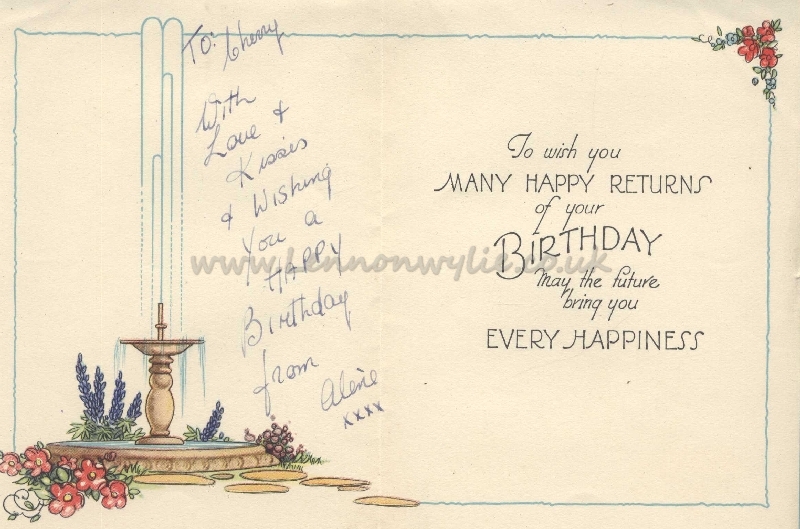 To: Cherry
With
Love +
Kisses
+ Wishing
You a
HAPPY
Birthday
from
xxxx
To wish you
MANY HAPPY RETURNS
of your
BIRTHDAY
May the future
bring you
EVERY HAPPINESS
www.Lennonwylie.co.uk